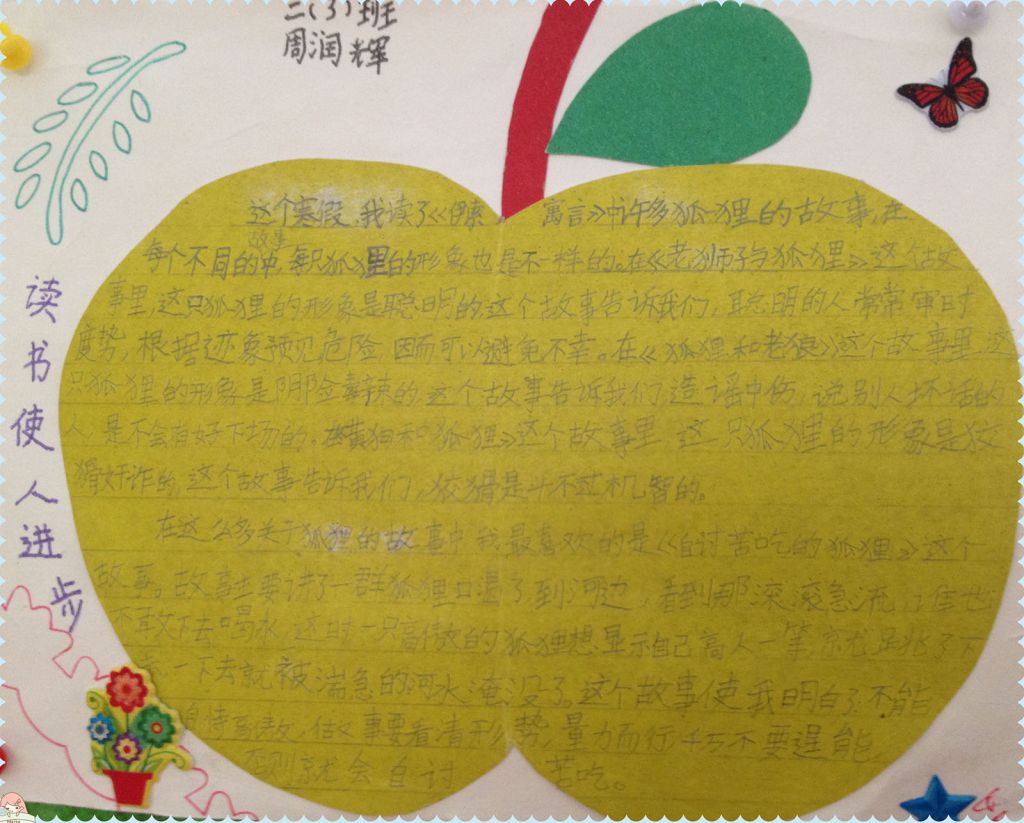 二(3)班
周润辉
读书使人进步
这个寒假,我读了《伊索寓言》中许多狐狸的故事,在
故事
每个不同的中,每只狐狸的形象也是不一样的。在《老狮子与狐狸》这个故
事里,这只狐狸的形象是聪明的,这个故事告诉我们,聪明的人常常审时
度势,根据迹象预见危险,因而可以避免不幸。在《狐狸和老狼》这个故事里,这
只狐狸的形象是阴险毒辣的,这个故事告诉我们,造谣中伤,说别人坏话的
人,是不会有好下场的。在黄狗和狐狸》这个故事里,这只狐狸的形象是狡
猾奸诈的,这个故事告诉我们,狡猾是斗不过机智的。
在这么多关于狐狸的故事中,我最喜欢的是《自讨苦吃的狐狸》这个
故事。故事主要讲了一群狐狸口渴了,到河边,看到那滚滚急流,谁也
不敢下去喝水,这时一只高傲的狐狸想显示自己高人一等,就是跳了下
一下去就被湍急的河水淹没了。这个故事使我明白了不能
恃高傲,做事要看清形势,量力而行,千万不要逞能,
否则就会自讨苦吃。